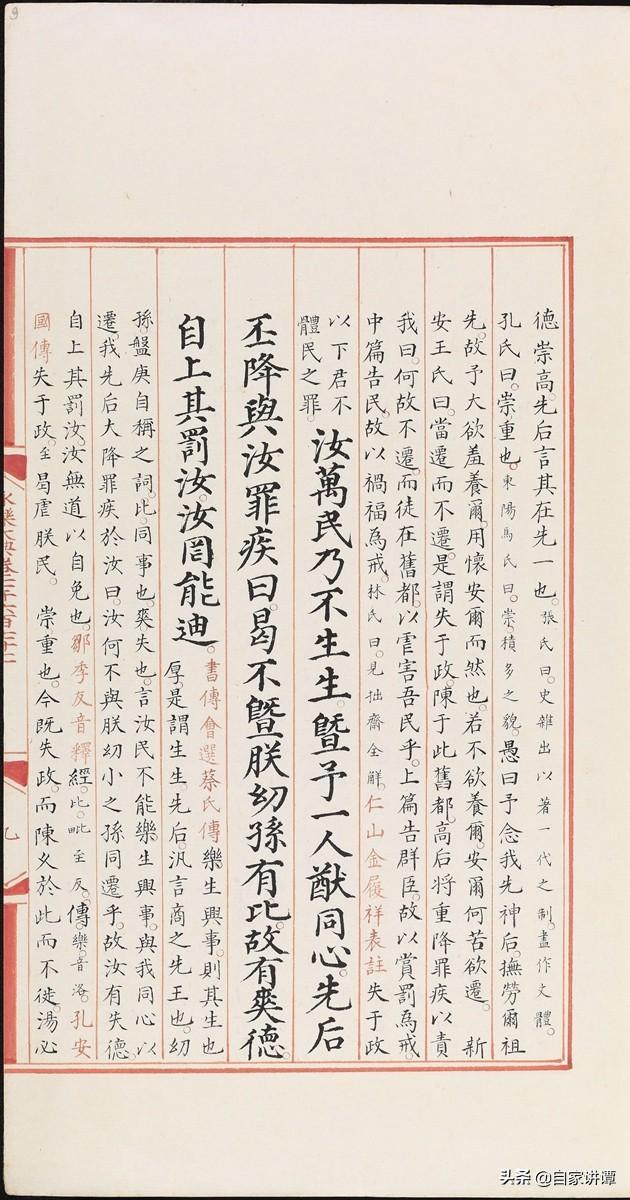 德崇高。先后言其在先一也。張氏曰。史雜出以著一代之制。畫作文體。
孔氏曰。崇。重也。東陽馬氏曰。崇。積多之貌。愚曰予念我先神后。撫勞爾祖
先。故予大欲羞養爾。用懷安爾而然也。若不欲養爾。安爾何苦欲遷。新
安王氏曰。當遷而不遷。是謂失于政。陳于此舊都。高后將重降罪疾以責
我曰。何故不遷。而徒在舊都。以虐害吾民乎。上篇告群臣。故以賞罰為戒。
中篇告民。故以禍福為戒。林氏曰。見拙齋全解。仁山金履祥表註失于政
以下君不
體民之罪。
汝萬民乃不生生。暨予一人猷同心。先后
丕降與汝罪疾曰。曷不暨朕幼孫有比。故有爽德。
自上其罰汝。汝罔能迪。
書傳會選蔡氏傳樂生興事。則其生也
厚。是謂生生。先后。汎言商之先王也。幼
孫。盤庚自稱之詞。比。同事也。爽。失也。言汝民不能樂生興事。與我同心以
遷。我先后大降罪疾於汝曰。汝何不與朕幼小之孫同遷乎。故汝有失德
自上其罰汝。汝無道以自免也。鄒季友音釋經。比。毗至反。傳。樂。音洛。孔安
國傳失于政。至曷虐朕民。崇。重也。今既失政。而陳久於此而不徙。湯必
永樂大典卷
九
9
头条 @自家讲谭